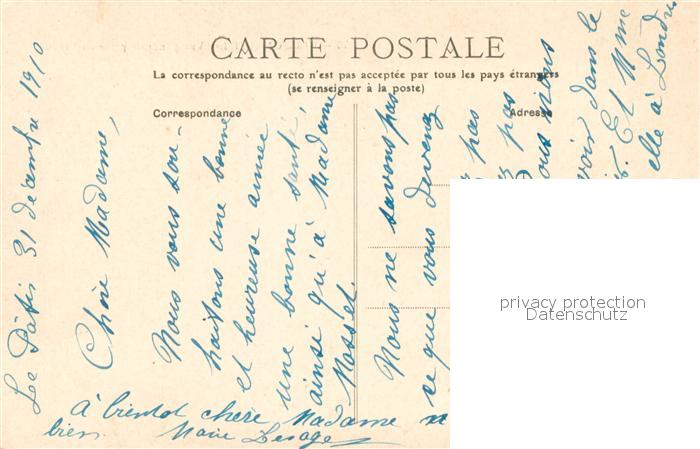 CARTE POSTALE
La correspondance au recto n'est pas acceptée par tous les pays étrangers
(se renseigner à la poste)
Correspondance
Adresse
Le Pâtis 31 décembre 1910
Chère Madame,
Nous vous sou-
haitons une bonne
et heureuse année
une bonne santé,
ainsi qu'à Madame
Mosset.
Nous ne savons pas
ce que vous devenez
pas
pas
vous nous
voir dans le
Et Mme
elle à Londres
à bientot chère Madame
bien Marie Lesage
privacy protection
Datenschutz